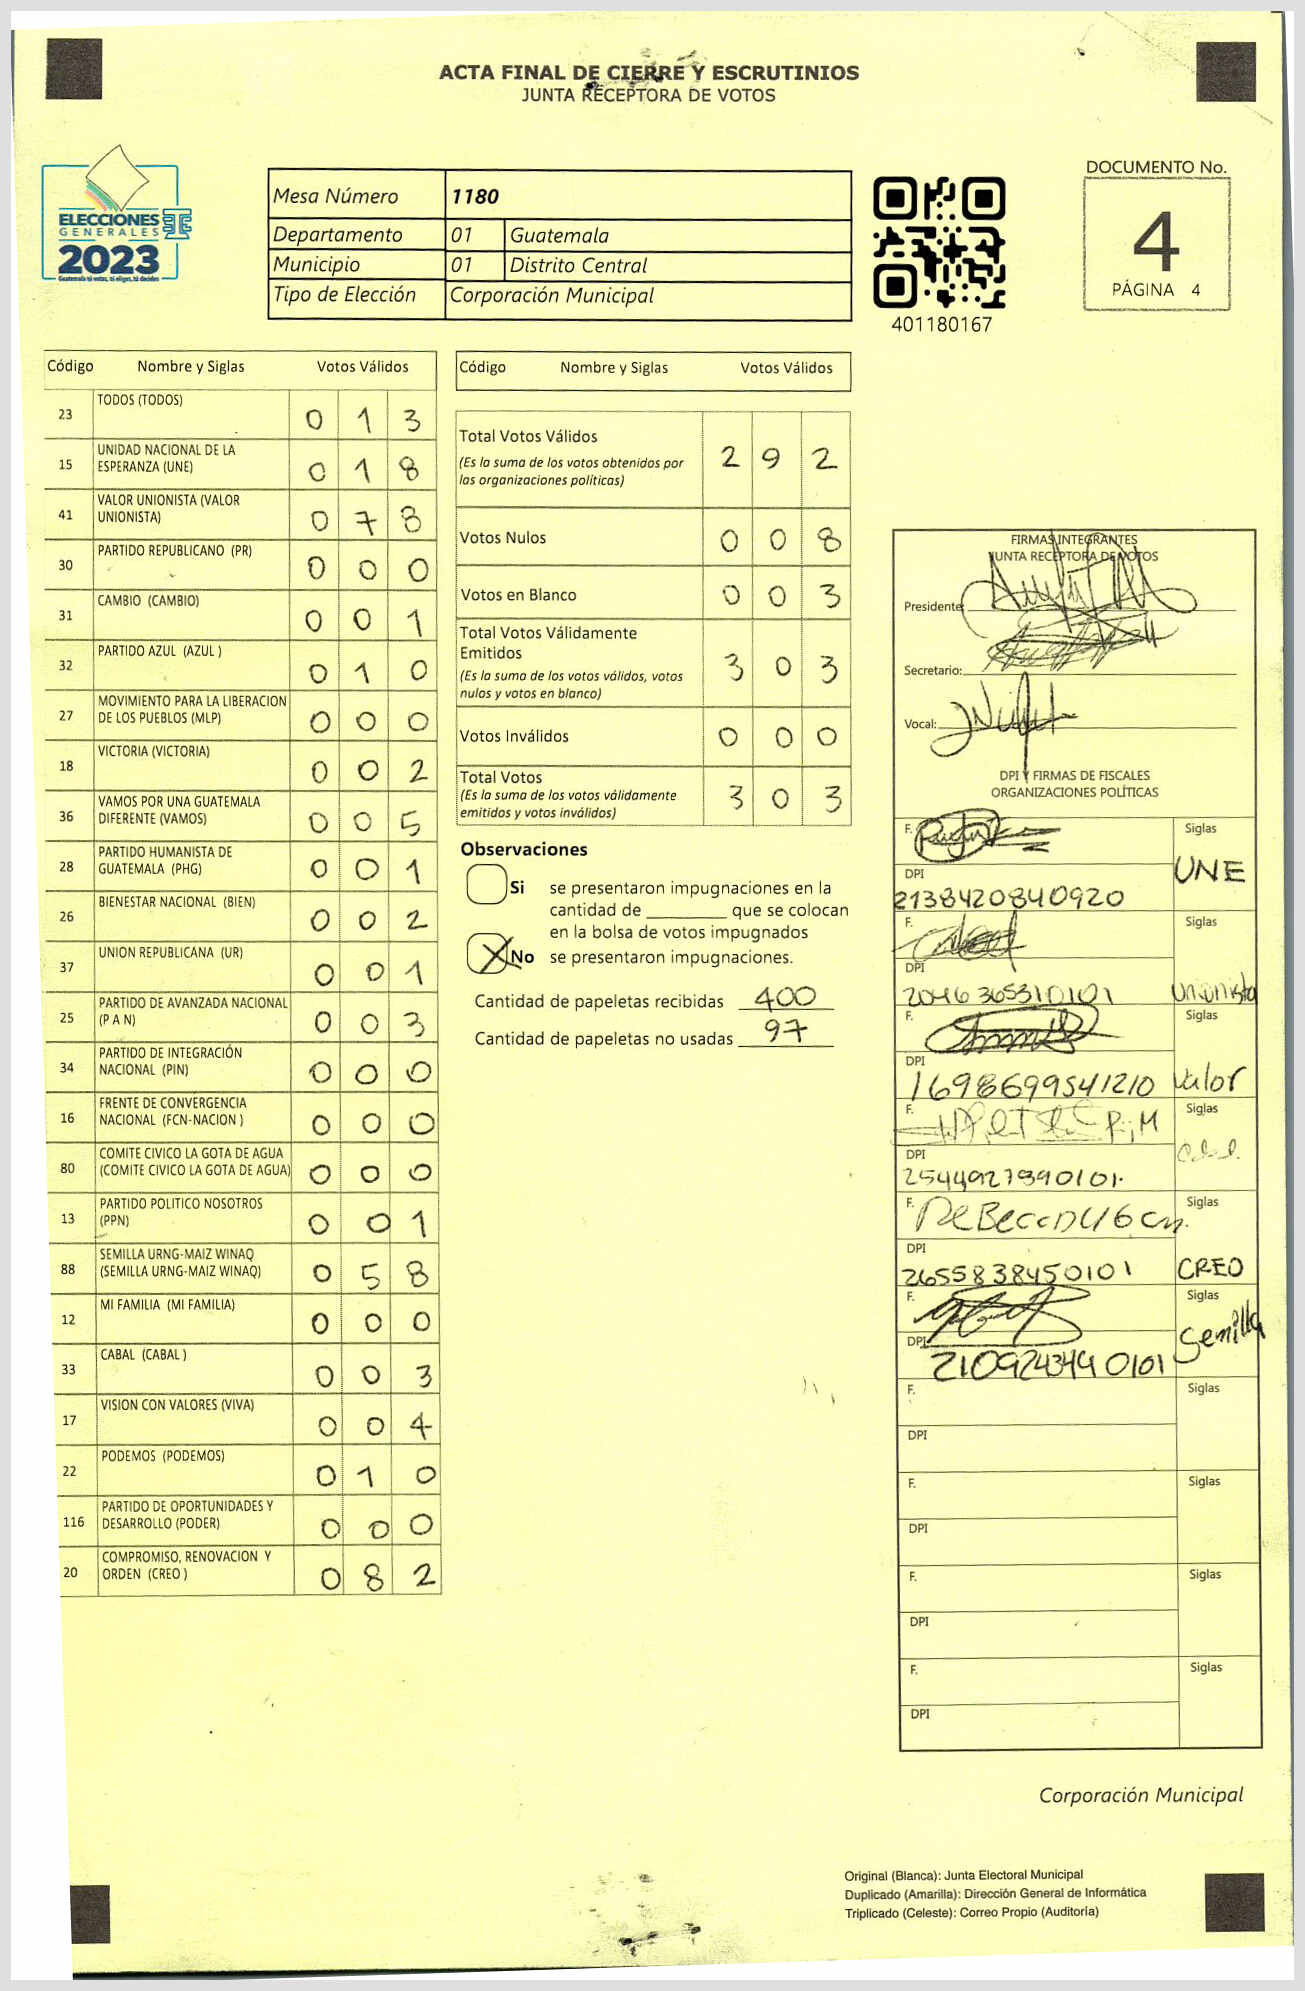 ACTA FINAL DE CIERRE Y ESCRUTINIOS
JUNTA RECEPTORA DE VOTOS
ELECCIONES
GENERALES
2023
Guatemala tú votas, tú eliges, tú decides
Mesa Número 1180
Departamento 01 Guatemala
Municipio 01 Distrito Central
Tipo de Elección Corporación Municipal
401180167
DOCUMENTO No.
4
PÁGINA 4
Código Nombre y Siglas Votos Válidos
23 TODOS (TODOS) 0 1 3
15 UNIDAD NACIONAL DE LA
ESPERANZA (UNE) 0 1 8
41 VALOR UNIONISTA (VALOR
UNIONISTA) 0 7 8
30 PARTIDO REPUBLICANO (PR) 0 0 0
31 CAMBIO (CAMBIO) 0 0 1
32 PARTIDO AZUL (AZUL ) 0 1 0
27 MOVIMIENTO PARA LA LIBERACION
DE LOS PUEBLOS (MLP) 0 0 0
18 VICTORIA (VICTORIA) 0 0 2
36 VAMOS POR UNA GUATEMALA
DIFERENTE (VAMOS) 0 0 5
28 PARTIDO HUMANISTA DE
GUATEMALA (PHG) 0 0 1
26 BIENESTAR NACIONAL (BIEN) 0 0 2
37 UNION REPUBLICANA (UR) 0 0 1
25 PARTIDO DE AVANZADA NACIONAL
(P A N) 0 0 3
34 PARTIDO DE INTEGRACIÓN
NACIONAL (PIN) 0 0 0
16 FRENTE DE CONVERGENCIA
NACIONAL (FCN-NACION ) 0 0 0
80 COMITE CIVICO LA GOTA DE AGUA
(COMITE CIVICO LA GOTA DE AGUA) 0 0 0
13 PARTIDO POLITICO NOSOTROS
(PPN) 0 0 1
88 SEMILLA URNG-MAIZ WINAQ
(SEMILLA URNG-MAIZ WINAQ) 0 5 8
12 MI FAMILIA (MI FAMILIA) 0 0 0
33 CABAL (CABAL ) 0 0 3
17 VISION CON VALORES (VIVA) 0 0 4
22 PODEMOS (PODEMOS) 0 1 0
116 PARTIDO DE OPORTUNIDADES Y
DESARROLLO (PODER) 0 0 0
20 COMPROMISO, RENOVACION Y
ORDEN (CREO ) 0 8 2
Código Nombre y Siglas Votos Válidos
Total Votos Válidos 2 9 2
(Es la suma de los votos obtenidos por
las organizaciones políticas)
Votos Nulos 0 0 8
Votos en Blanco 0 0 3
Total Votos Válidamente
Emitidos 3 0 3
(Es la suma de los votos válidos, votos
nulos y votos en blanco)
Votos Inválidos 0 0 0
Total Votos 3 0 3
(Es la suma de los votos válidamente
emitidos y votos inválidos)
Observaciones
Si se presentaron impugnaciones en la
cantidad de ________ que se colocan
en la bolsa de votos impugnados
X No se presentaron impugnaciones.
Cantidad de papeletas recibidas 400
Cantidad de papeletas no usadas 97
FIRMAS INTEGRANTES
JUNTA RECEPTORA DE VOTOS
Presidente:
Secretario:
Vocal:
DPI Y FIRMAS DE FISCALES
ORGANIZACIONES POLÍTICAS
F. Siglas
DPI UNE
2138420840920
F. Siglas
DPI
2046365310101 Unionista
F. Siglas
DPI
1698699541210 Valor
F. Siglas
DPI
2544927890101.
F. Siglas
DPI
2655838450101 CREO
F. Siglas
DPI Semilla
2109243440101
F. Siglas
DPI
F. Siglas
DPI
F. Siglas
DPI
F. Siglas
DPI
Corporación Municipal
Original (Blanca): Junta Electoral Municipal
Duplicado (Amarilla): Dirección General de Informática
Triplicado (Celeste): Correo Propio (Auditoría)